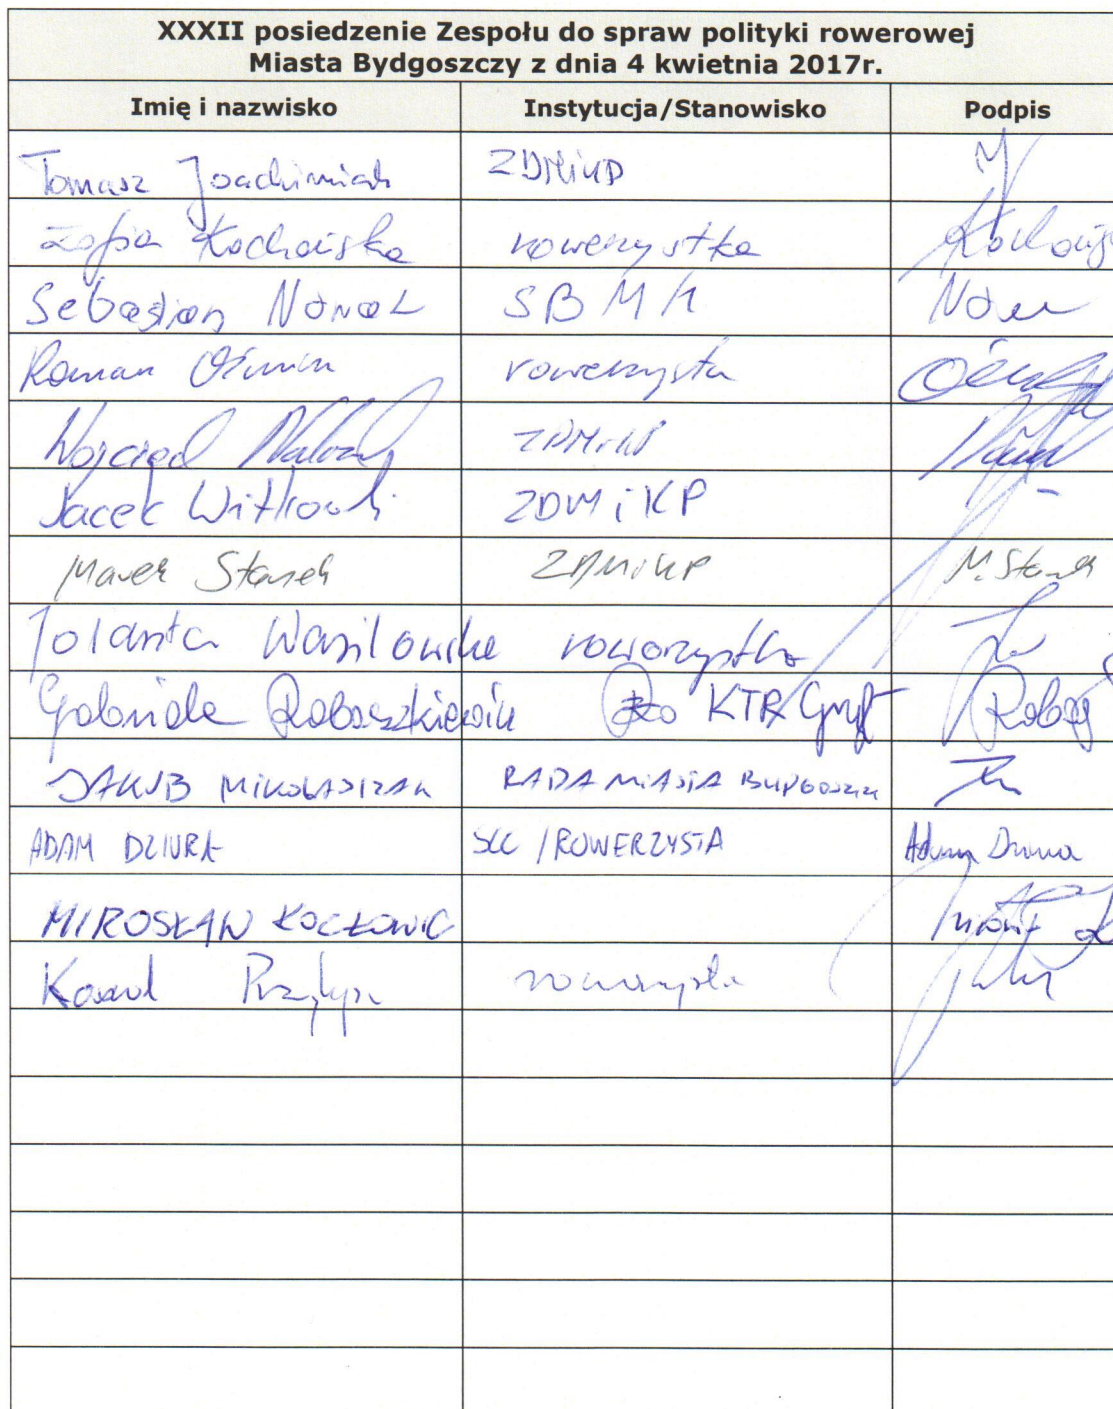 XXXII posiedzenie Zespołu do spraw polityki rowerowej
Miasta Bydgoszczy z dnia 4 kwietnia 2017r.
Imię i nazwisko Instytucja/Stanowisko Podpis
Tomasz Joachimiak ZDMiKP
Zofia Kochańska rowerzystka
Sebastian Nowak SBMK
Roman rowerzysta
Wojciech ZDMiKP
Jacek Witkowski ZDMiKP
Marek Stanek ZDMiKP M. Stanek
Jolanta Wasilewska rowerzystka
KTR Gryf
JAKUB MIKOŁAJCZAK RADA MIASTA BYDGOSZCZ
ADAM DZIURA SCC / ROWERZYSTA Adam Dziura
MIROSŁAW KOCŁOWIC
Karol rowerzysta